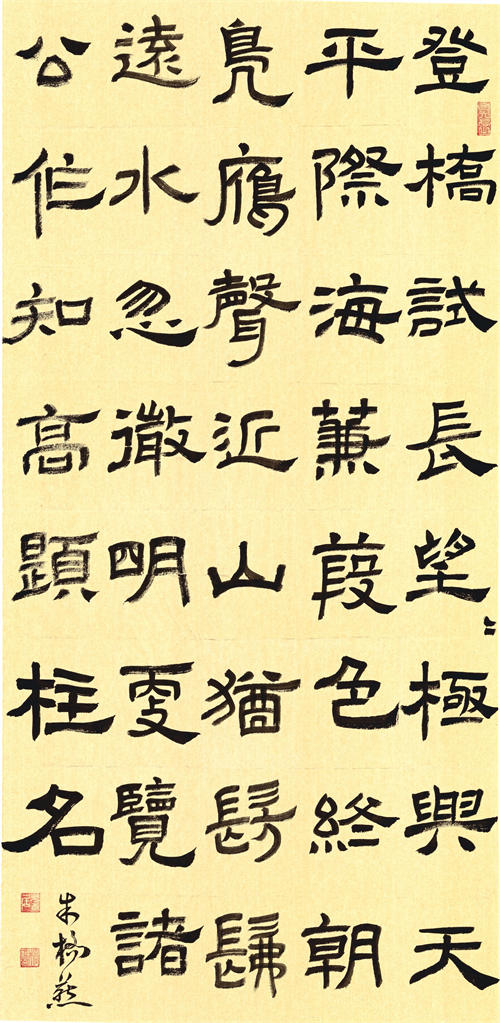 登橋試長望〻極與天
平際海蒹葭色終朝
鳧鴈聲近山猶髣髴
遠水忽微明更覽諸
公作知高題柱名